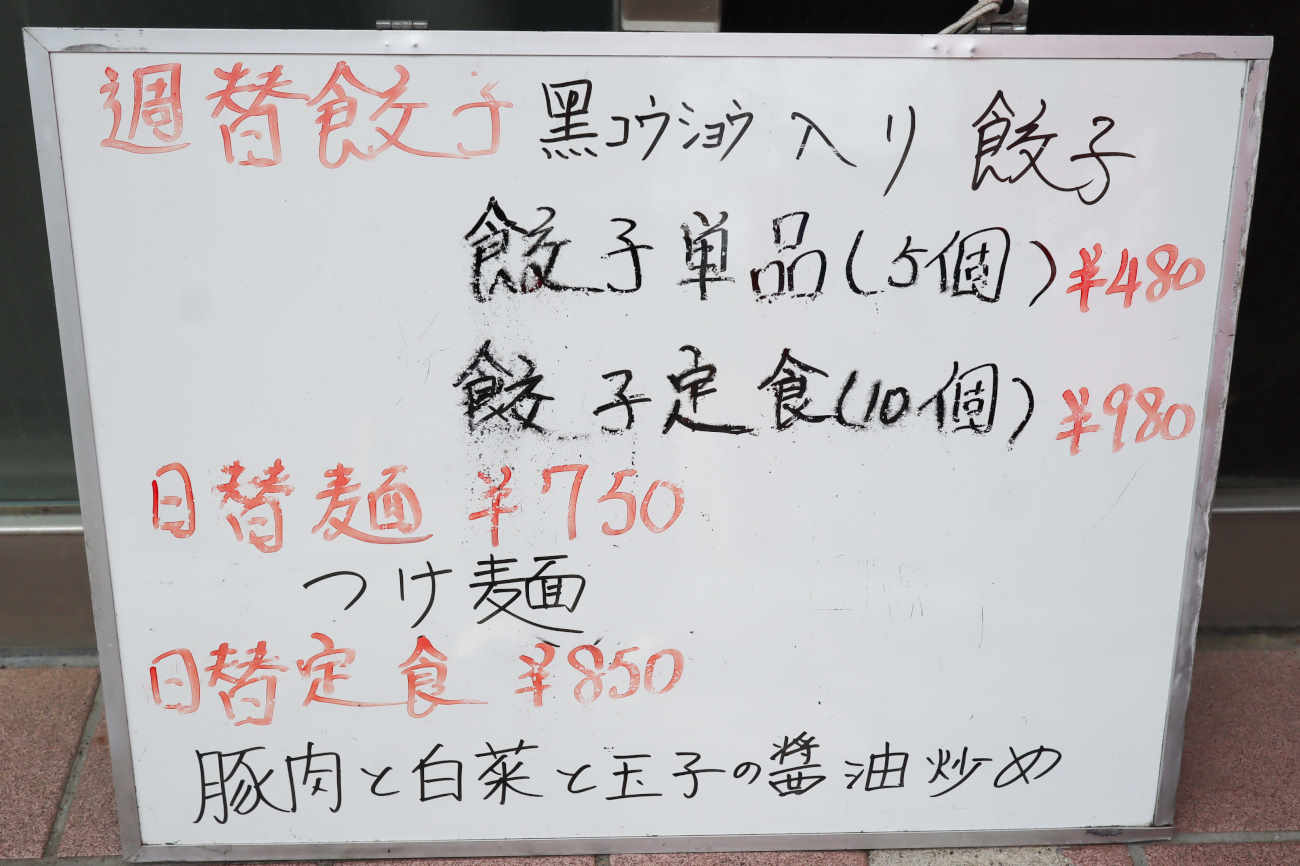 週替餃子 黒コウショウ入り餃子
餃子単品(5個) ¥480
餃子定食(10個) ¥980
日替麺 ¥750
つけ麺
日替定食 ¥850
豚肉と白菜と玉子の醤油炒め